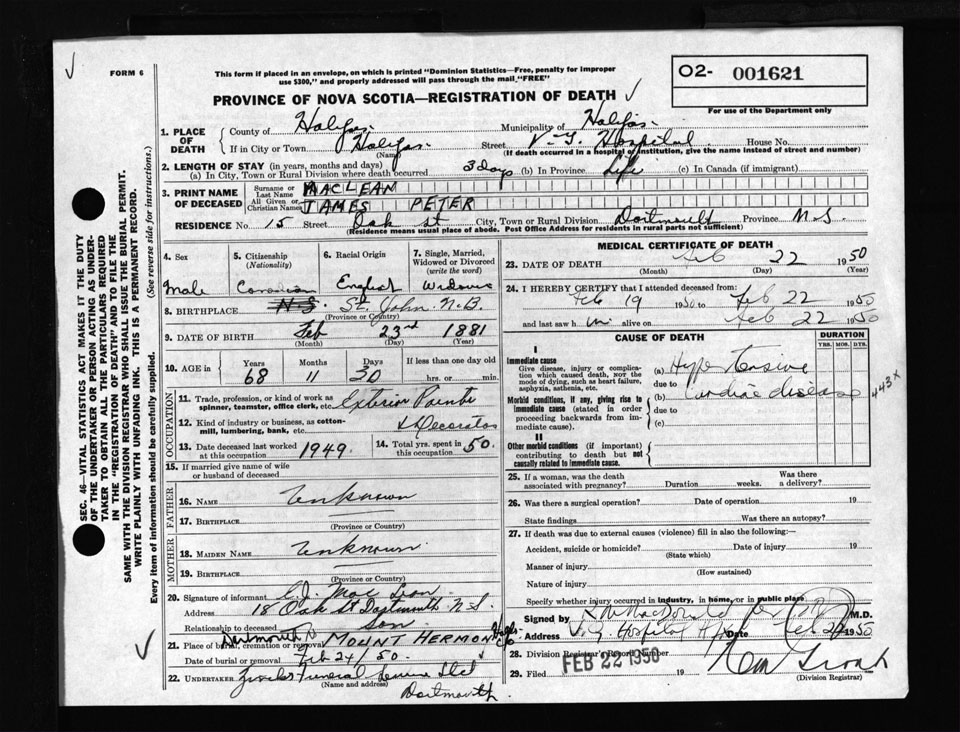 FORM 6
This form if placed in an envelope, on which is printed "Dominion Statistics—Free, penalty for improper
use $300," and properly addressed will pass through the mail "FREE"
O2- 001621
For use of the Department only
PROVINCE OF NOVA SCOTIA—REGISTRATION OF DEATH
SEC. 46—VITAL STATISTICS ACT MAKES IT THE DUTY
OF THE UNDERTAKER OR PERSON ACTING AS UNDER-
TAKER TO OBTAIN ALL THE PARTICULARS REQUIRED
IN THE "REGISTRATION OF DEATH" AND TO FILE THE
SAME WITH THE DIVISION REGISTRAR WHO SHALL ISSUE THE BURIAL PERMIT.
WRITE PLAINLY WITH UNFADING INK. THIS IS A PERMANENT RECORD.
Every item of information should be carefully supplied. (See reverse side for instructions.)
1. PLACE OF DEATH
County of Halifax Municipality of Halifax
If in City or Town Halifax Street V.G. Hospital House No.
(Name) (If death occurred in a hospital or institution, give the name instead of street and number)
2. LENGTH OF STAY (in years, months and days)
(a) In City, Town or Rural Division where death occurred 3 days (b) In Province Life (c) In Canada (if immigrant)
3. PRINT NAME OF DECEASED
Surname or Last Name MACLEAN
All Given or Christian Names JAMES PETER
RESIDENCE No. 15 Street Oak St City, Town or Rural Division Dartmouth Province N.S.
(Residence means usual place of abode. Post Office Address for residents in rural parts not sufficient)
4. Sex Male
5. Citizenship (Nationality) Canadian
6. Racial Origin English
7. Single, Married, Widowed or Divorced (write the word) Widower
8. BIRTHPLACE N.S. St. John N.B.
(Province or Country)
9. DATE OF BIRTH Feb 23rd 1881
(Month) (Day) (Year)
10. AGE in Years 68 Months 11 Days 30 If less than one day old hrs. or min.
OCCUPATION
11. Trade, profession, or kind of work as
spinner, teamster, office clerk, etc. Exterior Painter
12. Kind of industry or business, as cotton-
mill, lumbering, bank, etc. & Decorator
13. Date deceased last worked at this occupation 1949
14. Total yrs. spent in this occupation 50
15. If married give name of wife
or husband of deceased
FATHER
16. NAME Unknown
17. BIRTHPLACE
(Province or Country)
MOTHER
18. MAIDEN NAME Unknown
19. BIRTHPLACE
(Province or Country)
20. Signature of informant C.J. MacLean
Address 18 Oak St Dartmouth N.S.
Relationship to deceased Son
21. Place of burial, cremation or removal Dartmouth MOUNT HERMON
Date of burial or removal Feb 24/50
22. UNDERTAKER Funeral Service Ltd
(Name and address)
Dartmouth
MEDICAL CERTIFICATE OF DEATH
23. DATE OF DEATH Feb 22 1950
(Month) (Day) (Year)
24. I HEREBY CERTIFY that I attended deceased from:
Feb 19 1950 to Feb 22 1950
and last saw h im alive on Feb 22 1950
CAUSE OF DEATH
DURATION
YRS. MOS. DYS.
I
Immediate cause
Give disease, injury or complica-
tion which caused death, not the
mode of dying, such as heart failure,
asphyxia, asthenia, etc.
(a) Hypertensive
due to
Morbid conditions, if any, giving rise to
immediate cause (stated in order
proceeding backwards from im-
mediate cause).
(b) Cardiac disease 443X
due to
(c)
II
Other morbid conditions (if important)
contributing to death but not
causally related to immediate cause.
25. If a woman, was the death
associated with pregnancy? Duration weeks. Was there
a delivery?
26. Was there a surgical operation? Date of operation 19
State findings Was there an autopsy?
27. If death was due to external causes (violence) fill in also the following:—
Accident, suicide or homicide? Date of injury 19
(State which)
Manner of injury
(How sustained)
Nature of injury
Specify whether injury occurred in industry, in home, or in public place
Signed by MacDonald M.D.
Address V.G. Hospital Hfx Date Feb 22 1950
28. Division Registrar's Record Number
29. Filed FEB 22 1950 19
(Division Registrar)